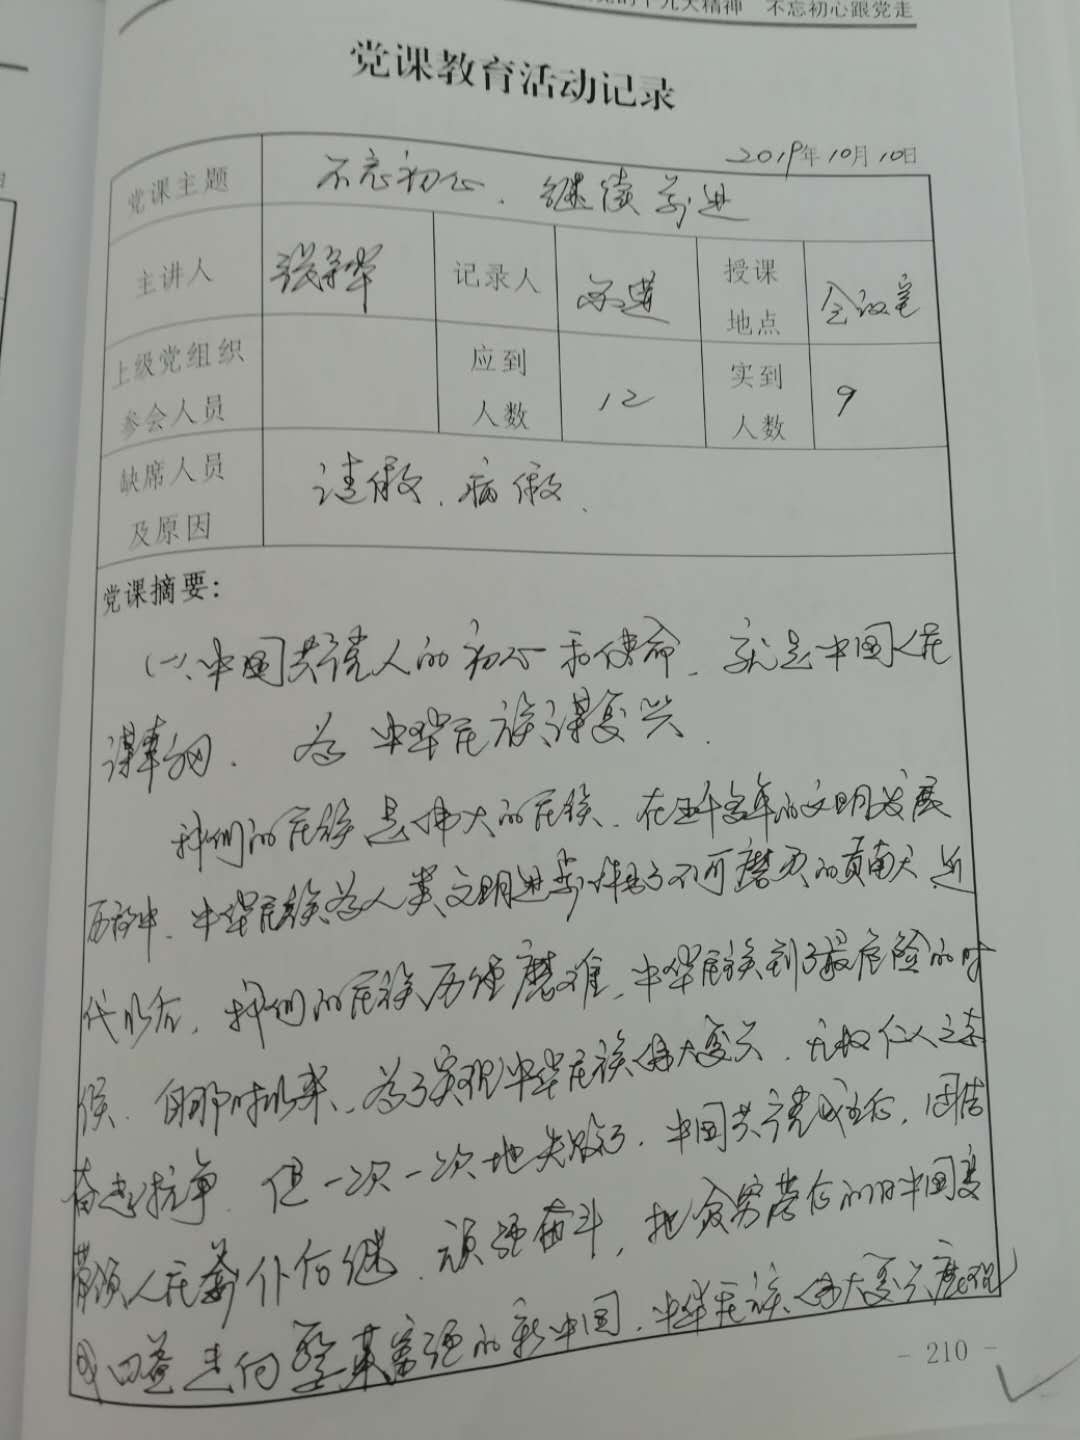 的十九大精神 不忘初心跟党走
党课教育活动记录
2019年10月10日
党课主题 不忘初心、继续前进
主讲人 记录人 授课地点 会议室
上级党组织参会人员 应到人数 12 实到人数 9
缺席人员及原因 请假、病假.
党课摘要：
(一)、中国共产党人的初心和使命，就是中国人民
谋幸福，为中华民族谋复兴.
我们的民族是伟大的民族，在五千多年的文明发展
历程中，中华民族为人类文明进步作出了不可磨灭的贡献，近
代以后，我们的民族历经磨难，中华民族到了最危险的时
候，自那时以来，为了实现中华民族伟大复兴，无数仁人志士
奋起抗争，但一次一次地失败了，中国共产党成立后，团结
带领人民前仆后继，顽强奋斗，把贫穷落后的旧中国变
日益走向繁荣富强的新中国，中华民族伟大复兴展现
- 210 -